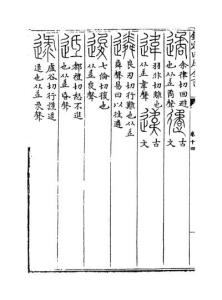 遹 余律切回避也从辵矞聲 古文
違 羽非切離也从辵韋聲 古文
遴 良刃切行難也从辵粦聲易曰以往遴
逡 七倫切復也从辵夋聲
都禮切不進也从辵氐聲
逯 盧谷切行謹逯逯也从辵彔聲
卷十四